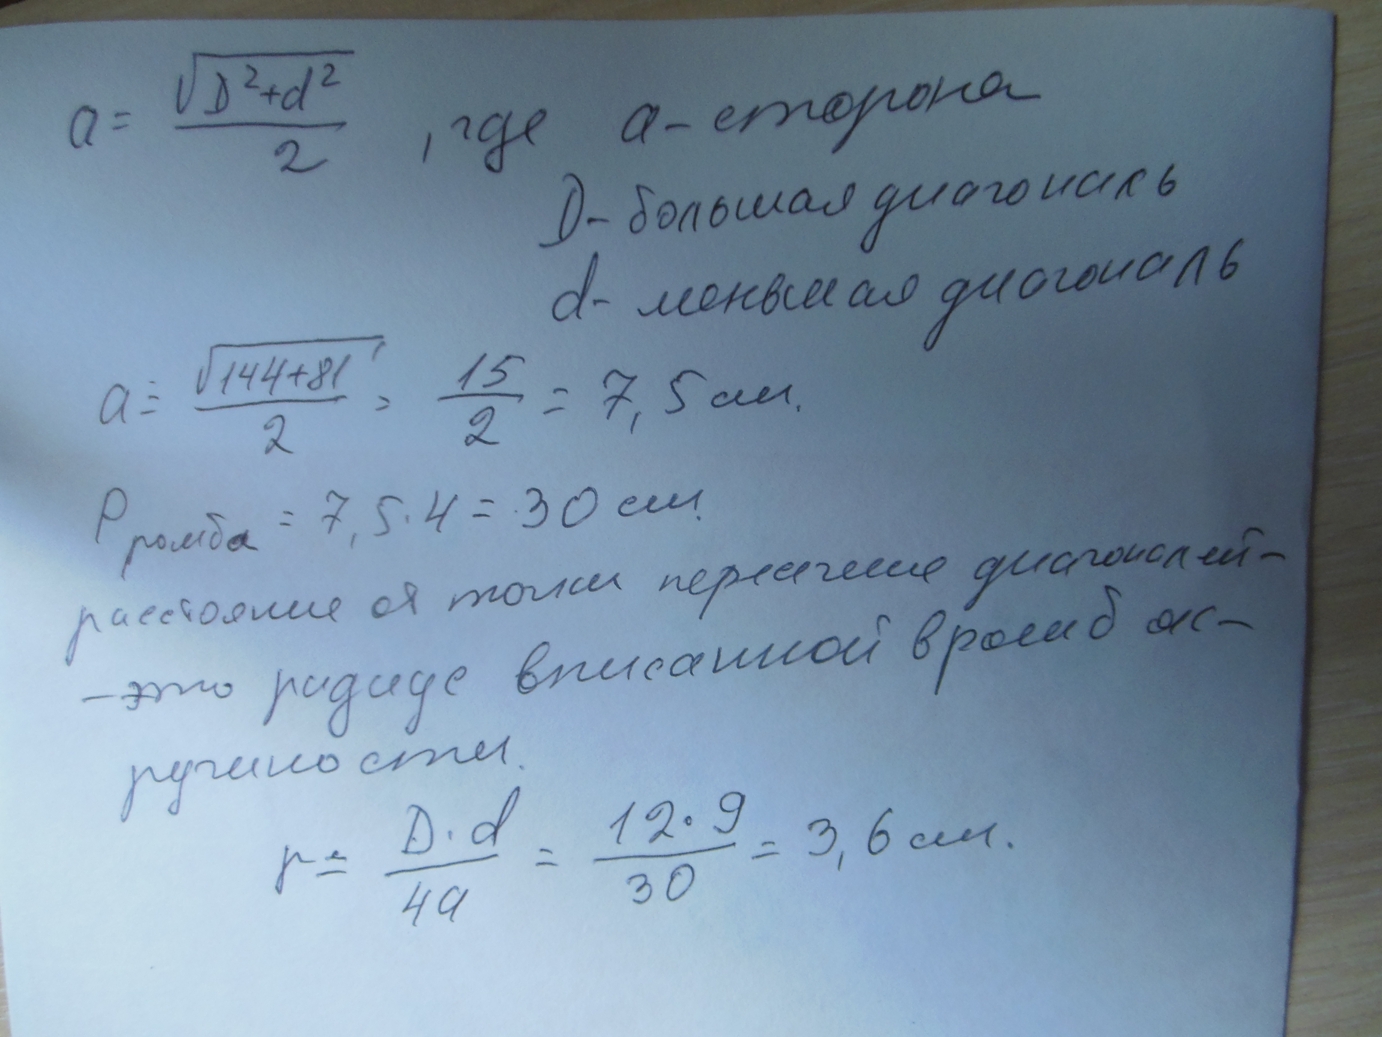 a = √(D²+d²)/2 , где a - сторона
D - большая диагональ
d - меньшая диагональ
a = √(144+81)/2 = 15/2 = 7,5 см.
P ромба = 7,5·4 = 30 см.
расстояние от точки пересечения диагоналей -
- это радиус вписанной в ромб ок-
ружности.
r = D·d/4a = 12·9/30 = 3,6 см.